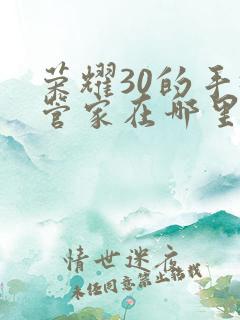 荣耀30的手
管家在哪里
情世迷农
未经同意禁止转载